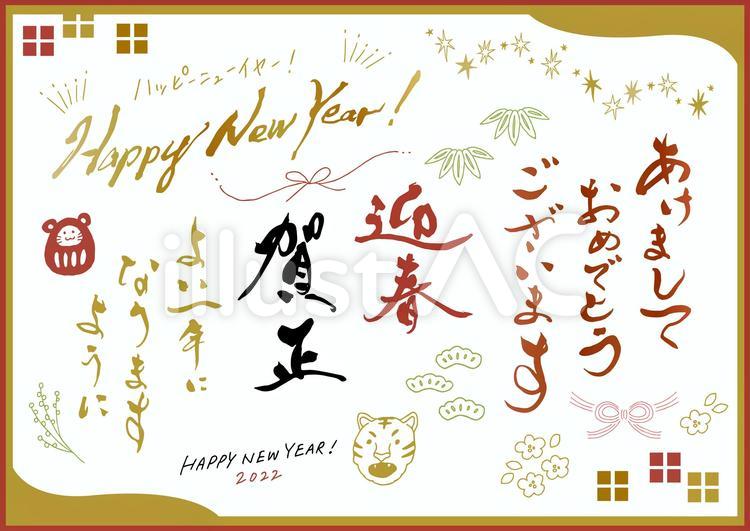 ハッピーニューイヤー!
Happy New Year!
あけまして
おめでとう
ございます
迎春
賀正
よい年に
なります
ように
HAPPY NEW YEAR!
2022
illustAC